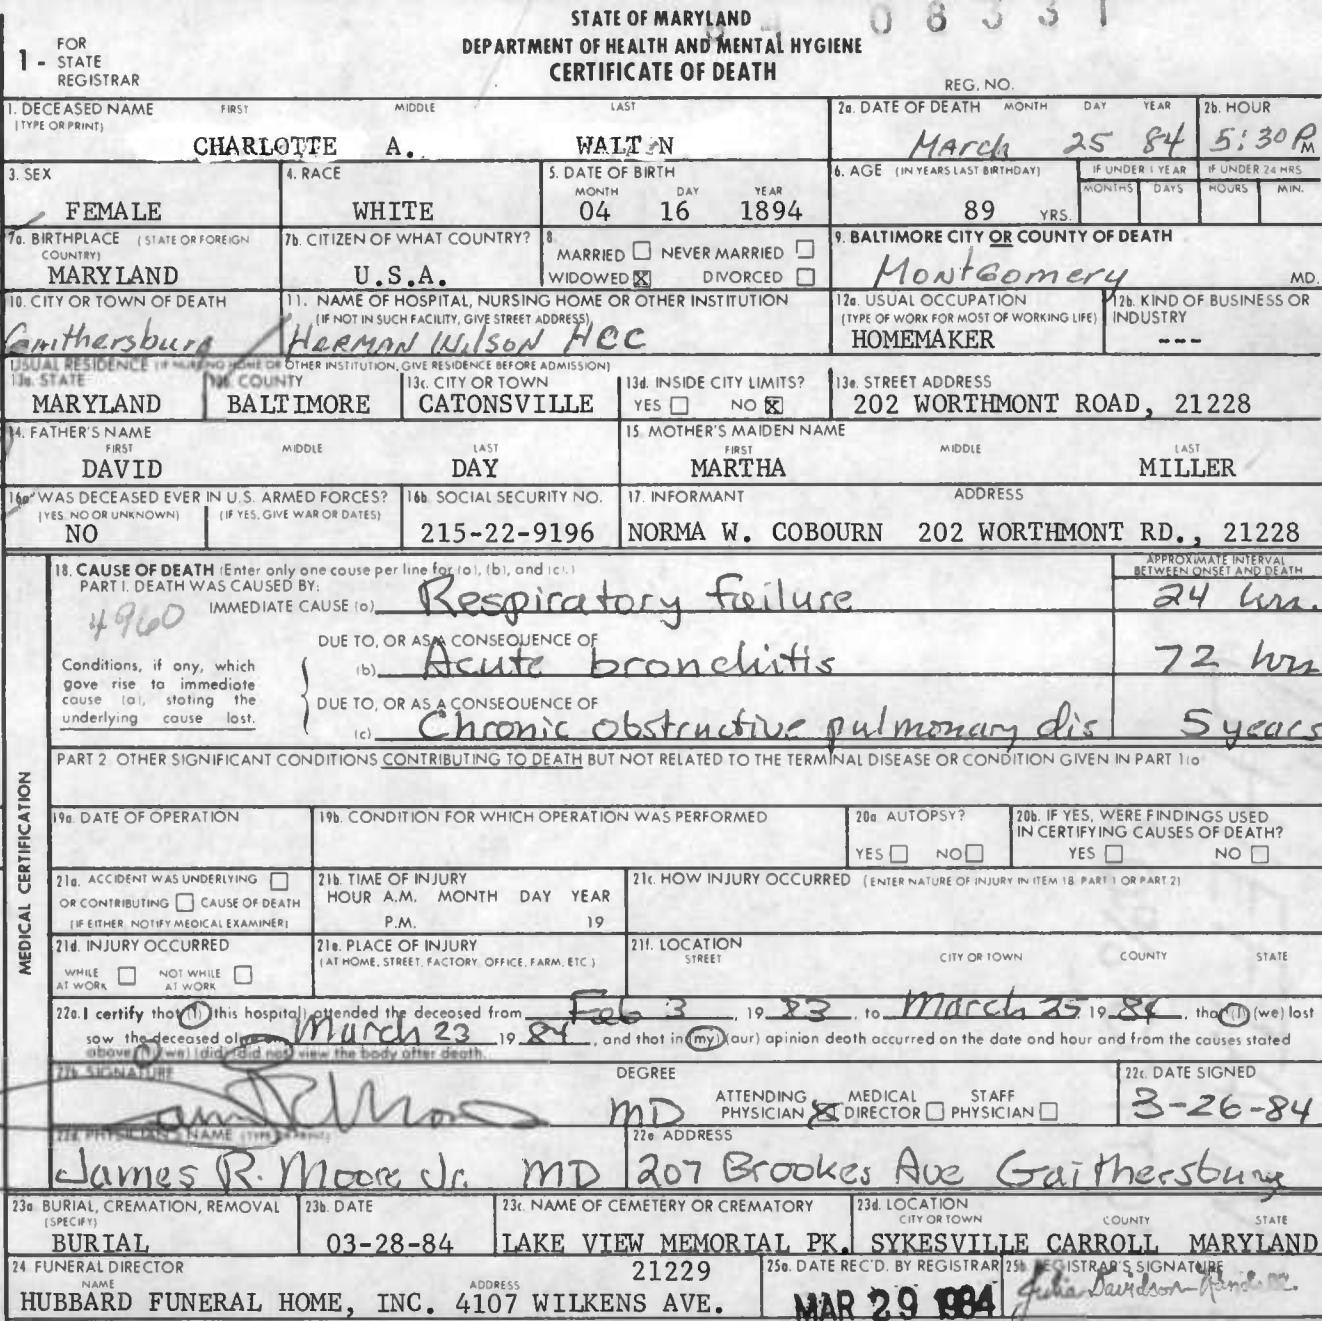 STATE OF MARYLAND
DEPARTMENT OF HEALTH AND MENTAL HYGIENE
CERTIFICATE OF DEATH
08331
1 - FOR STATE REGISTRAR
REG. NO.
1. DECEASED NAME (TYPE OR PRINT) FIRST MIDDLE LAST
CHARLOTTE A. WALT N
2a. DATE OF DEATH MONTH DAY YEAR
March 25 84
2b. HOUR
5:30 PM
3. SEX
FEMALE
4. RACE
WHITE
5. DATE OF BIRTH
MONTH DAY YEAR
04 16 1894
6. AGE (IN YEARS LAST BIRTHDAY)
89 YRS.
IF UNDER 1 YEAR MONTHS DAYS
IF UNDER 24 HRS HOURS MIN.
7a. BIRTHPLACE (STATE OR FOREIGN COUNTRY)
MARYLAND
7b. CITIZEN OF WHAT COUNTRY?
U.S.A.
8. MARRIED ☐ NEVER MARRIED ☐
WIDOWED ☒ DIVORCED ☐
9. BALTIMORE CITY OR COUNTY OF DEATH
Montgomery MD.
10. CITY OR TOWN OF DEATH
Gaithersburg
11. NAME OF HOSPITAL, NURSING HOME OR OTHER INSTITUTION
(IF NOT IN SUCH FACILITY, GIVE STREET ADDRESS)
HERMAN WILSON HCC
12a. USUAL OCCUPATION
(TYPE OF WORK FOR MOST OF WORKING LIFE)
HOMEMAKER
12b. KIND OF BUSINESS OR INDUSTRY
---
USUAL RESIDENCE (IF NURSING HOME OR OTHER INSTITUTION, GIVE RESIDENCE BEFORE ADMISSION)
13a. STATE
MARYLAND
13b. COUNTY
BALTIMORE
13c. CITY OR TOWN
CATONSVILLE
13d. INSIDE CITY LIMITS?
YES ☐ NO ☒
13e. STREET ADDRESS
202 WORTHMONT ROAD, 21228
14. FATHER'S NAME
FIRST MIDDLE LAST
DAVID DAY
15. MOTHER'S MAIDEN NAME
FIRST MIDDLE LAST
MARTHA MILLER
16a. WAS DECEASED EVER IN U.S. ARMED FORCES?
(YES, NO OR UNKNOWN) (IF YES, GIVE WAR OR DATES)
NO
16b. SOCIAL SECURITY NO.
215-22-9196
17. INFORMANT ADDRESS
NORMA W. COBOURN 202 WORTHMONT RD., 21228
MEDICAL CERTIFICATION
18. CAUSE OF DEATH (Enter only one cause per line for (a), (b), and (c).)
PART I. DEATH WAS CAUSED BY:
APPROXIMATE INTERVAL BETWEEN ONSET AND DEATH
4960
IMMEDIATE CAUSE (a) Respiratory failure 24 hrs.
DUE TO, OR AS A CONSEQUENCE OF
(b) Acute bronchitis 72 hrs
Conditions, if any, which gave rise to immediate cause (a), stating the underlying cause last.
DUE TO, OR AS A CONSEQUENCE OF
(c) Chronic obstructive pulmonary dis 5 years
PART 2 OTHER SIGNIFICANT CONDITIONS CONTRIBUTING TO DEATH BUT NOT RELATED TO THE TERMINAL DISEASE OR CONDITION GIVEN IN PART 1(a)
19a. DATE OF OPERATION
19b. CONDITION FOR WHICH OPERATION WAS PERFORMED
20a AUTOPSY?
YES ☐ NO ☐
20b. IF YES, WERE FINDINGS USED IN CERTIFYING CAUSES OF DEATH?
YES ☐ NO ☐
21a. ACCIDENT WAS UNDERLYING ☐
OR CONTRIBUTING ☐ CAUSE OF DEATH
(IF EITHER, NOTIFY MEDICAL EXAMINER)
21b. TIME OF INJURY
HOUR A.M. MONTH DAY YEAR
P.M. 19
21c. HOW INJURY OCCURRED (ENTER NATURE OF INJURY IN ITEM 18 PART 1 OR PART 2)
21d. INJURY OCCURRED
WHILE AT WORK ☐ NOT WHILE AT WORK ☐
21e. PLACE OF INJURY
(AT HOME, STREET, FACTORY, OFFICE, FARM, ETC.)
21f. LOCATION
STREET CITY OR TOWN COUNTY STATE
22a. I certify that (I) (this hospital) attended the deceased from Feb 3, 19 83, to March 25, 19 84, that (I) (we) last
saw the deceased alive on March 23 19 84, and that in (my) (our) opinion death occurred on the date and hour and from the causes stated
above (I) (we) (did) (did not) view the body after death.
22b. SIGNATURE
DEGREE
MD
ATTENDING PHYSICIAN ☒ MEDICAL DIRECTOR ☐ STAFF PHYSICIAN ☐
22c. DATE SIGNED
3-26-84
22d. PHYSICIAN'S NAME (TYPE OR PRINT)
James R. Moore Jr. MD
22e ADDRESS
207 Brookes Ave Gaithersburg
23a BURIAL, CREMATION, REMOVAL (SPECIFY)
BURIAL
23b. DATE
03-28-84
23c. NAME OF CEMETERY OR CREMATORY
LAKE VIEW MEMORIAL PK.
23d. LOCATION
CITY OR TOWN COUNTY STATE
SYKESVILLE CARROLL MARYLAND
24 FUNERAL DIRECTOR
NAME ADDRESS
21229
HUBBARD FUNERAL HOME, INC. 4107 WILKENS AVE.
25a. DATE REC'D. BY REGISTRAR
MAR 29 1984
25b. REGISTRAR'S SIGNATURE
Julia Davidson-Randall